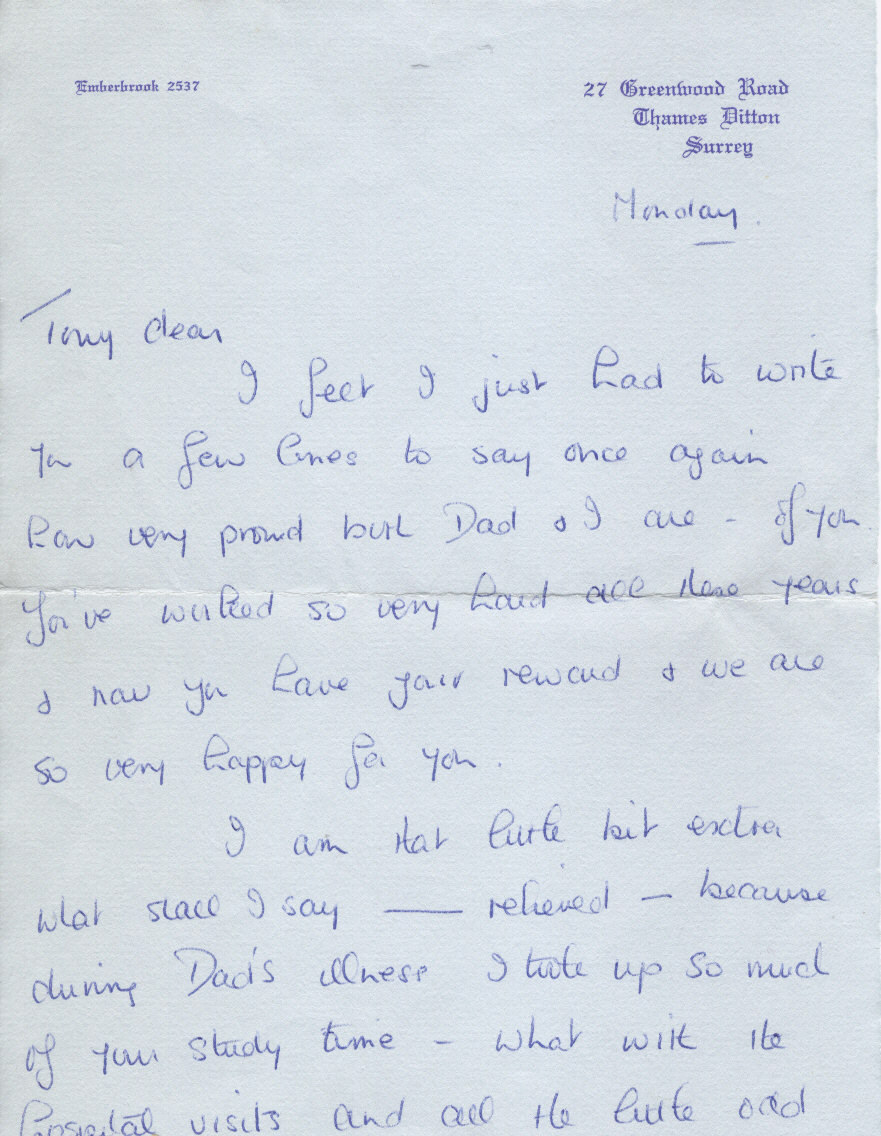 Emberbrook 2537
27 Greenwood Road
Thames Ditton
Surrey
Monday.
Tony dear
I feel I just had to write
you a few lines to say once again
how very proud both Dad & I are - of you.
You've worked so very hard all these years
& now you have your reward & we are
so very happy for you.
I am that little bit extra
what shall I say — relieved — because
during Dad's illness I took up so much
of your study time - what with the
hospital visits and all the little odd